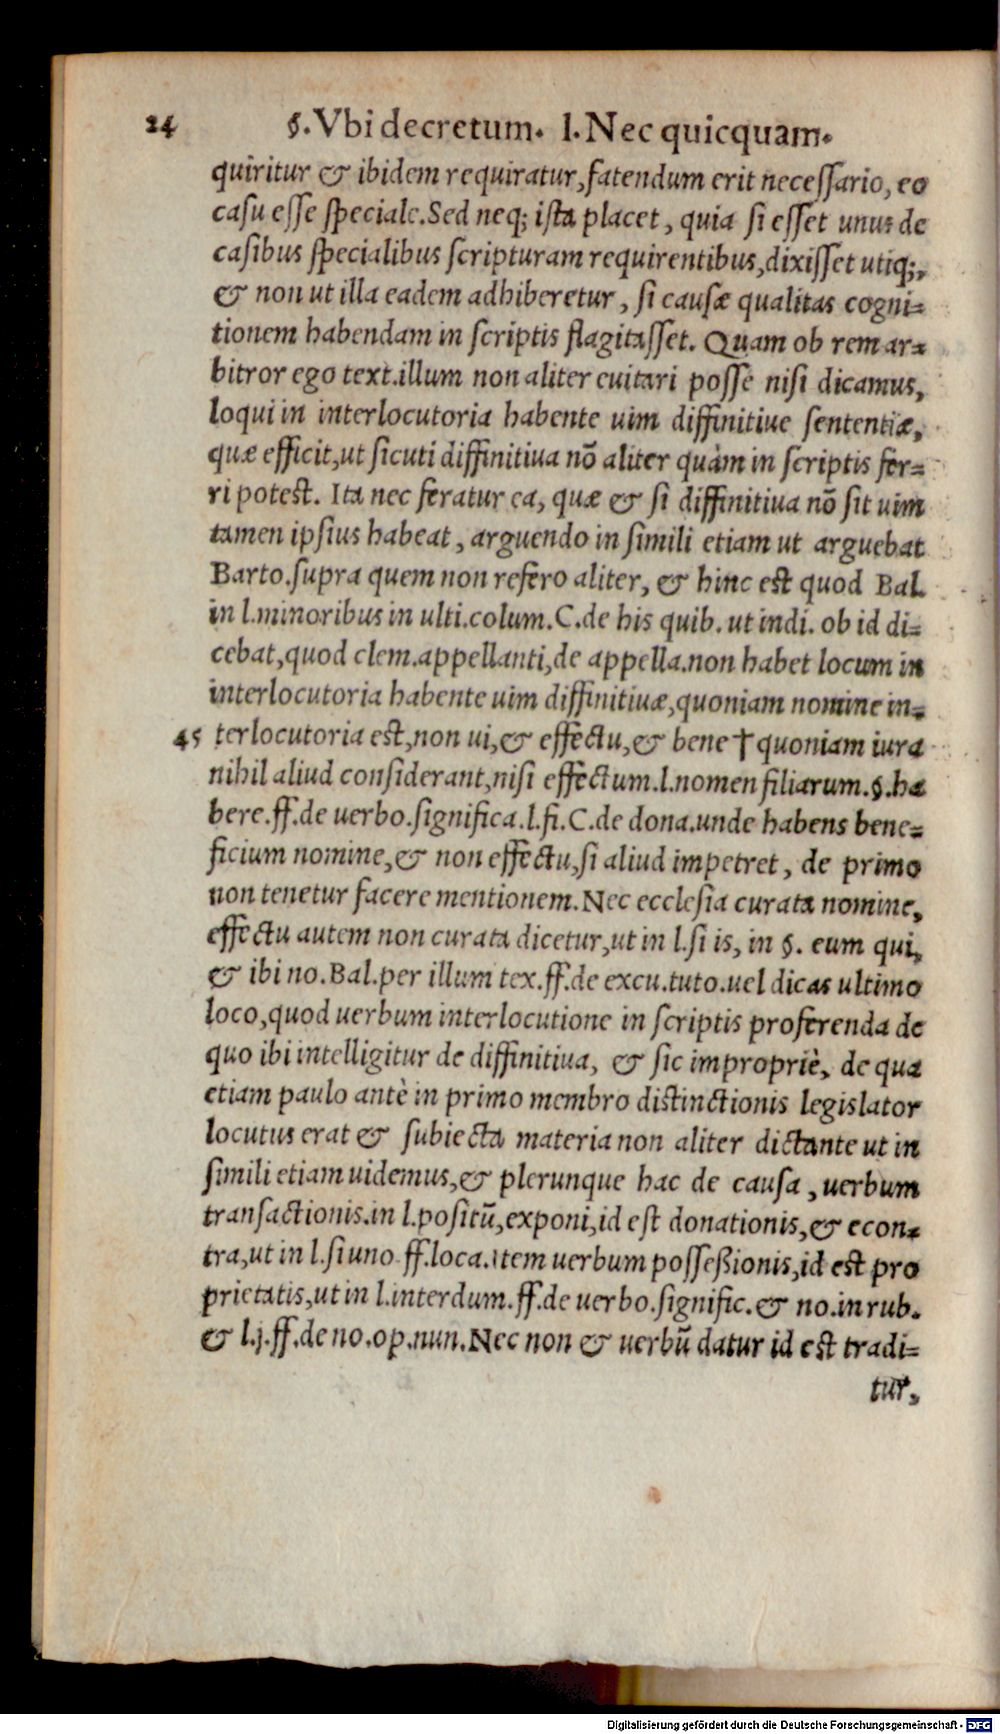 24 §. Vbi decretum. l. Nec quicquam.
quiritur & ibidem requiratur, fatendum erit necessario, eo
casu esse speciale. Sed neq; ista placet, quia si esset unus de
casibus specialibus scripturam requirentibus, dixisset utiq;,
& non ut illa eadem adhiberetur, si causæ qualitas cogni=
tionem habendam in scriptis flagitasset. Quam ob rem ar=
bitror ego text. illum non aliter euitari posse nisi dicamus,
loqui in interlocutoria habente uim diffinitiue sententiæ,
quæ efficit, ut sicuti diffinitiua nõ aliter quàm in scriptis fer=
ri potest. Ita nec feratur ea, quæ & si diffinitiua nõ sit uim
tamen ipsius habeat, arguendo in simili etiam ut arguebat
Barto. supra quem non refero aliter, & hinc est quod Bal.
in l. minoribus in ulti. colum. C. de his quib. ut indi. ob id di=
cebat, quod clem. appellanti, de appella. non habet locum in
interlocutoria habente uim diffinitiuæ, quoniam nomine in=
45 terlocutoria est, non ui, & effectu, & bene † quoniam iura
nihil aliud considerant, nisi effectum. l. nomen filiarum. §. ha
bere. ff. de uerbo. significa. l. fi. C. de dona. unde habens bene=
ficium nomine, & non effectu, si aliud impetret, de primo
non tenetur facere mentionem. Nec ecclesia curata nomine,
effectu autem non curata dicetur, ut in l. si is, in §. eum qui,
& ibi no. Bal. per illum tex. ff. de excu. tuto. uel dicas ultimo
loco, quod uerbum interlocutione in scriptis proferenda de
quo ibi intelligitur de diffinitiua, & sic impropriè, de qua
etiam paulo antè in primo membro distinctionis legislator
locutus erat & subiecta materia non aliter dictante ut in
simili etiam uidemus, & plerunque hac de causa, uerbum
transactionis. in l. positũ, exponi, id est donationis, & econ=
tra, ut in l. si uno ff. loca. item uerbum possessionis, id est pro
prietatis, ut in l. interdum. ff. de uerbo. signific. & no. in rub.
& l. j. ff. de no. op. nun. Nec non & uerbũ datur id est tradi=
tur,
Digitalisierung gefördert durch die Deutsche Forschungsgemeinschaft - DFG